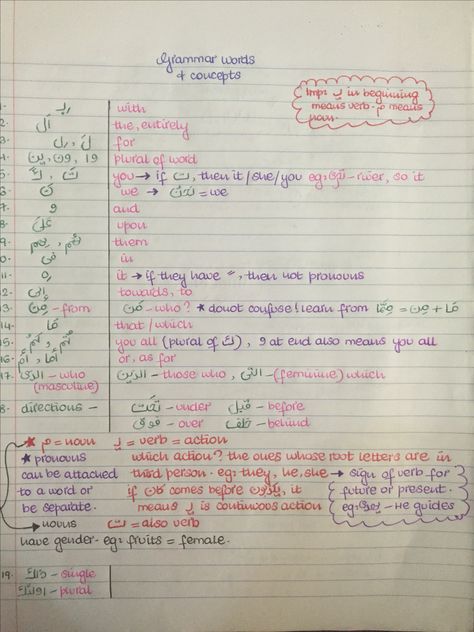 Grammar words
& concepts
Imp: يـ in beginning
means verb. م means
noun.
1- بِـ with
2. اَل the, entirely
3. لَ, لِ for
4. وا, ون, ين plural of word
you → if ت, then it/she/you eg: - river, so it
نَ we → نَحْنُ = we
7. و and
8. عَلَىٰ upon
9. هُم, هِم them
10. فِى in
11. ه it → if they have ", then not pronouns
12. إِلىٰ towards, to
13. مِن - from مَن - who? * donot confuse! learn from مِمَّا = مِن + مَا
14. مَا that/which
15. you all (plural of كَ), و at end also means you all
16. أَو, أَمَّا or, as for
17. الَّذِى - who الَّذِين - those who, الَّتِى - (feminine) which
(masculine)
18. directions - تَحْتَ - under قَبْل - before
فَوْق - over خَلْف - behind
* م = noun يـ = verb = action
* pronouns which action? the ones whose root letters are in
can be attached third person. eg: they, he, she → sign of verb for
to a word or if كَانَ comes before, it future or present.
be separate. means يـ is continuous action eg: يَهْدِى - He guides
→ nouns ت = also verb
have gender - eg: fruits = female.
19. - single
- plural